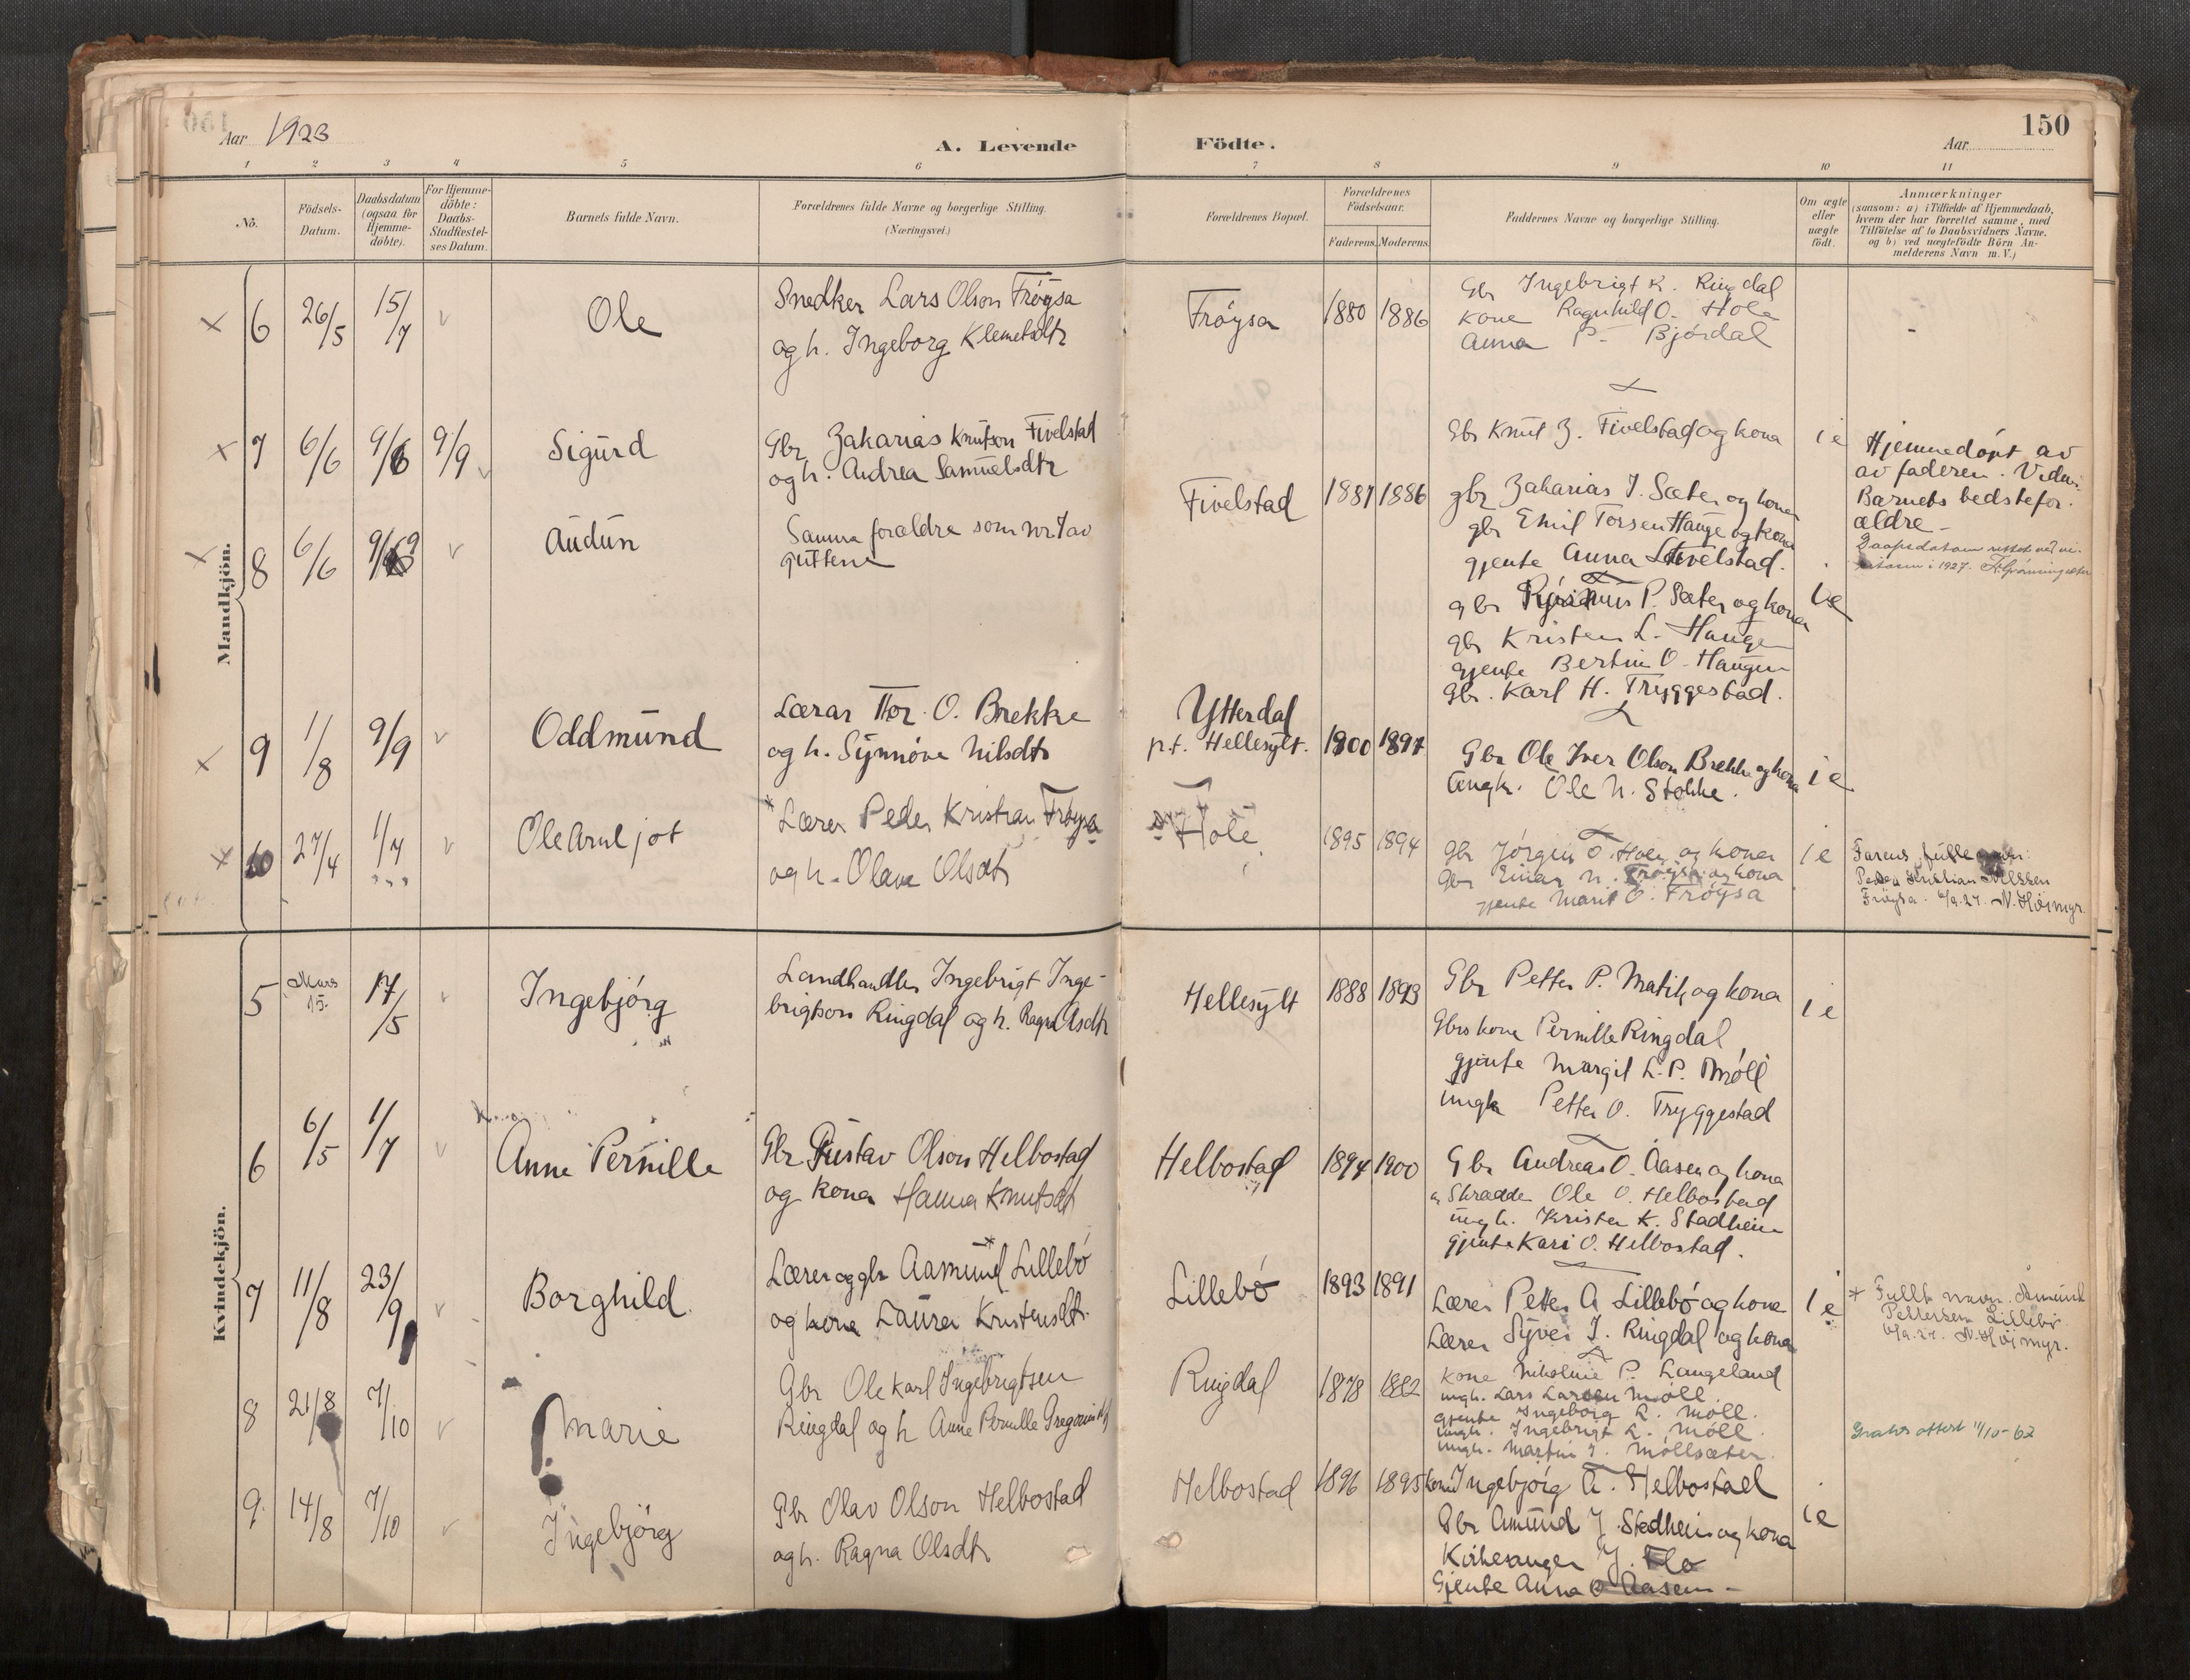 150
Aar 1923
A. Levende Födte.
Aar
1 2 3 4 5 6 7 8 9 10 11
Nô.
Födsels-
Datum.
Daabsdatum
(ogsaa for
Hjemme-
döbte).
For Hjemme-
döbte:
Daabs-
Stadfæstel-
ses Datum.
Barnets fulde Navn.
Forældrenes fulde Navne og borgerlige Stilling.
(Næringsvei.)
Forældrenes Bopæl.
Forældrenes
Födselsaar.
Faderens. Moderens.
Faddernes Navne og borgerlige Stilling.
Om ægte
eller
uægte
födt.
Anmærkninger
(saasom: a) i Tilfælde af Hjemmedaab,
hvem der har forrettet samme, med
Tilföielse af to Daabsvidners Navne.
og b) ved uægtefödte Börn An-
melderens Navn m. V.)
Mandkjön.
6 26/5 15/7 Ole
Snedker Lars Olson Frøysa
og h. Ingeborg Klemetsdtr
Frøysa 1880 1886
Gbr Ingebrigt K. Ringdal
Kone Ragnhild O. Hole
Anna P. Bjørdal
7 6/6 9/6 9/9 Sigurd
Gbr Zakarias Knutson Fivelstad
og h. Andrea Samuelsdtr
Fivelstad 1887 1886
Gbr Knut Z. Fivelstad og kona
gbr Zakarias I. Sæter og kona
gbr Emil Torsen Hauge og kona
gjente Anna Fivelstad.
i e
Hjemmedøpt av
av faderen.
Barnets bedstefor-
ældre-
Daapsdatum rettet ved vi-
i 1927.
8 6/6 Audun
Samme forældre som nr 7 av
guttene
gbr P. Sæter og kona
gbr Kristen L. Hauge
gjente Bertine O. Haugen
Gbr. Karl H. Tryggestad.
i e
9 11/8 9/9 Oddmund
Lærar Thor O. Brekke
og h. Synnøve Nilsdtr
Ytterdal
p.t. Hellesylt. 1900 1897
Gbr Ole Iver Olson Brekke og kona
Ungk. Ole N. Stokke.
i e
10 27/4 1/7 Ole Arnljot
*Lærer Peder Kristian Frøysa
og h. Olava Olsdtr
Hole 1895 1894
gbr Jørgen O. Hole og kona
Gbr Einar N. Frøysa og kona
gjente Marit O. Frøysa
i e
Farens fulle navn:
Peder Kristian Nilssen
Frøysa. 6/9.27. N. Høimyr.
Kvindekjön.
5 Mars 15. 17/5 Ingebjørg
Landhandler Ingebrigt Inge-
brigtson Ringdal og h. Ragna Asdtr
Hellesylt 1888 1893
Gbr Petter P. Matik og kona
Gbrs kone Pernille Ringdal
gjente Margit L. P. Møll
Ungk Petter O. Tryggestad
i e
6 6/5 1/7 Anne Pernille
Gbr Gustav Olson Helbostad
og kona Hanna Knutsdtr
Helbostad 1894 1900
Gbr Andreas O. Aasen og kona
Skrædder Ole O. Helbostad
ungk. Kristen K. Stadheim
gjente Kari O. Helbostad.
7 11/8 23/9 Borghild.
Lærer og gbr Aamund* Lillebø
og kona Laura Kristensdtr.
Lillebø 1893 1891
Lærer Petter A Lillebø og kone
Lærer Syver J. Ringdal og kona
i e
* Fullt navn: Amund
Pettersen Lillebø.
6/9.27. N. Høimyr.
8 21/8 7/10 Marie
Gbr Ole Karl Ingebrigtsen
Ringdal og h Anne Pernille
Ringdal 1878 1882
Kone Nikoline P. Langeland
ungk. Lars Larsen Møll
gjente Ingeborg L. Møll.
ungk. Ingebrigt L. Møll.
ungk. Martin J. Møllsæter.
Gratis attest 11/10-62
9 14/8 7/10 Ingebjørg
Gbr Olav Olson Helbostad
og h. Ragna Olsdtr
Helbostad 1896 1895
Kone Ingebjørg A. Helbostad
Gbr Amund J. Stadheim og kona
Kirkesanger J. Flo
Gjente Anna O Aasen-
i e